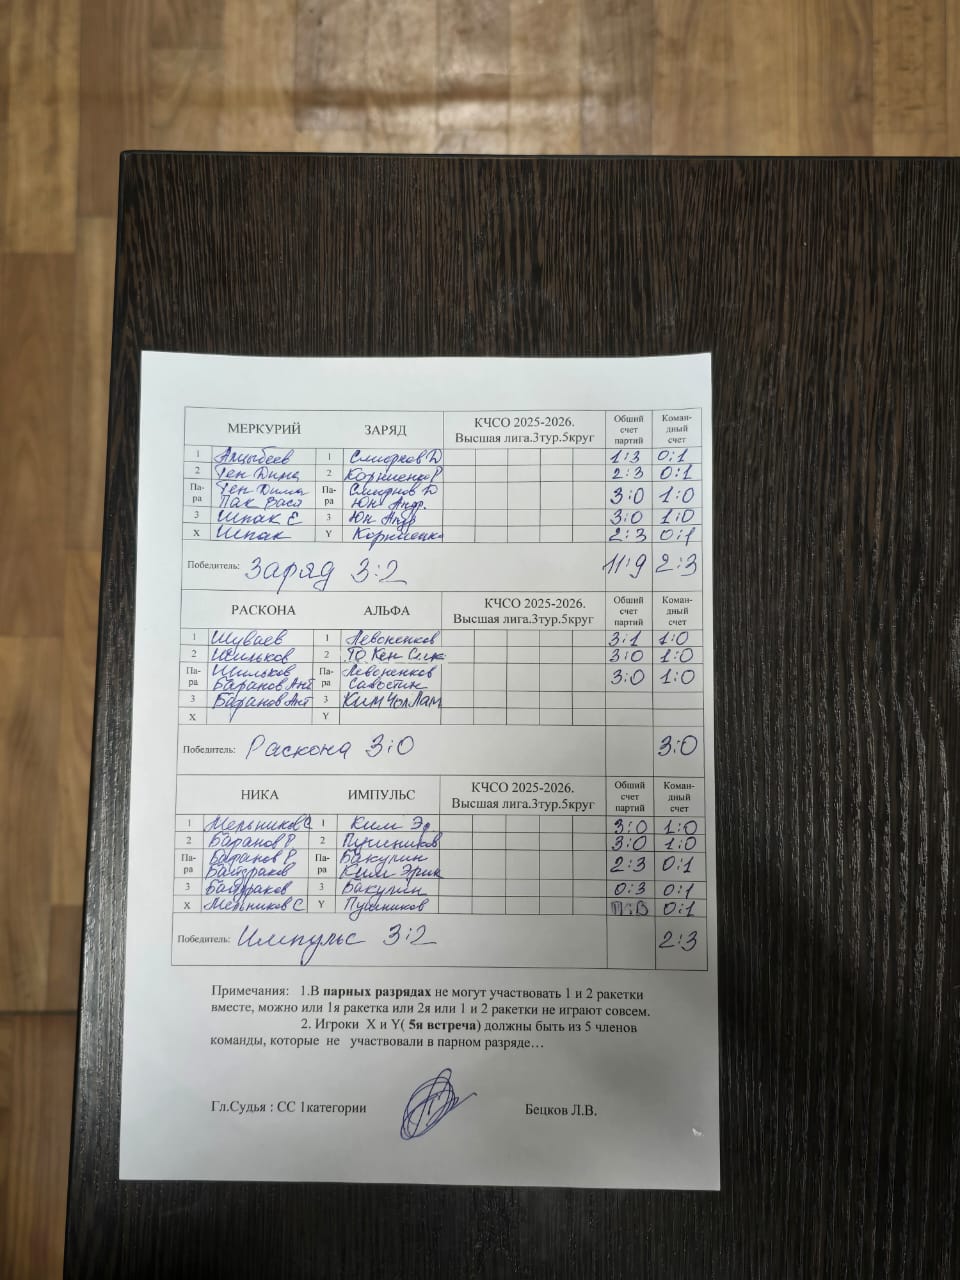 МЕРКУРИЙ ЗАРЯД КЧСО 2025-2026. Высшая лига.3тур.5круг Общий счет партий Коман-дный счет
1 1 Смирнов Д 1:3 0:1
2 Тен Дима 2 Корниенко Р 2:3 0:1
Па-ра Тен Дима Па-ра Смирнов Д 3:0 1:0
Пак Вася Юн Андр.
3 Шпак Е 3 Юн Андр 3:0 1:0
X Шпак Y Корниенко 2:3 0:1
Победитель: Заряд 3:2 11:9 2:3
РАСКОНА АЛЬФА КЧСО 2025-2026. Высшая лига.3тур.5круг Общий счет партий Коман-дный счет
1 Шуваев 1 Левоненков 3:1 1:0
2 Шильков 2 3:0 1:0
Па-ра Шильков Па-ра Левоненков 3:0 1:0
Баранов Ант Савостин
3 Баранов Ант 3 Ким Чол Лам
X Y
Победитель: Раскона 3:0 3:0
НИКА ИМПУЛЬС КЧСО 2025-2026. Высшая лига.3тур.5круг Общий счет партий Коман-дный счет
1 Мельников С 1 Ким Эр 3:0 1:0
2 Баранов Р 2 Пушников 3:0 1:0
Па-ра Баранов Р. Па-ра Бакулин 2:3 0:1
Байдраков Ким Эрик
3 Байдраков 3 Бакулин 0:3 0:1
X Мельников С Y Пушников 0:1
Победитель: Импульс 3:2 2:3
Примечания: 1.В парных разрядах не могут участвовать 1 и 2 ракетки
вместе, можно или 1я ракетка или 2я или 1 и 2 ракетки не играют совсем.
2. Игроки X и Y( 5я встреча) должны быть из 5 членов
команды, которые не участвовали в парном разряде…
Гл.Судья : СС 1категории Бецков Л.В.